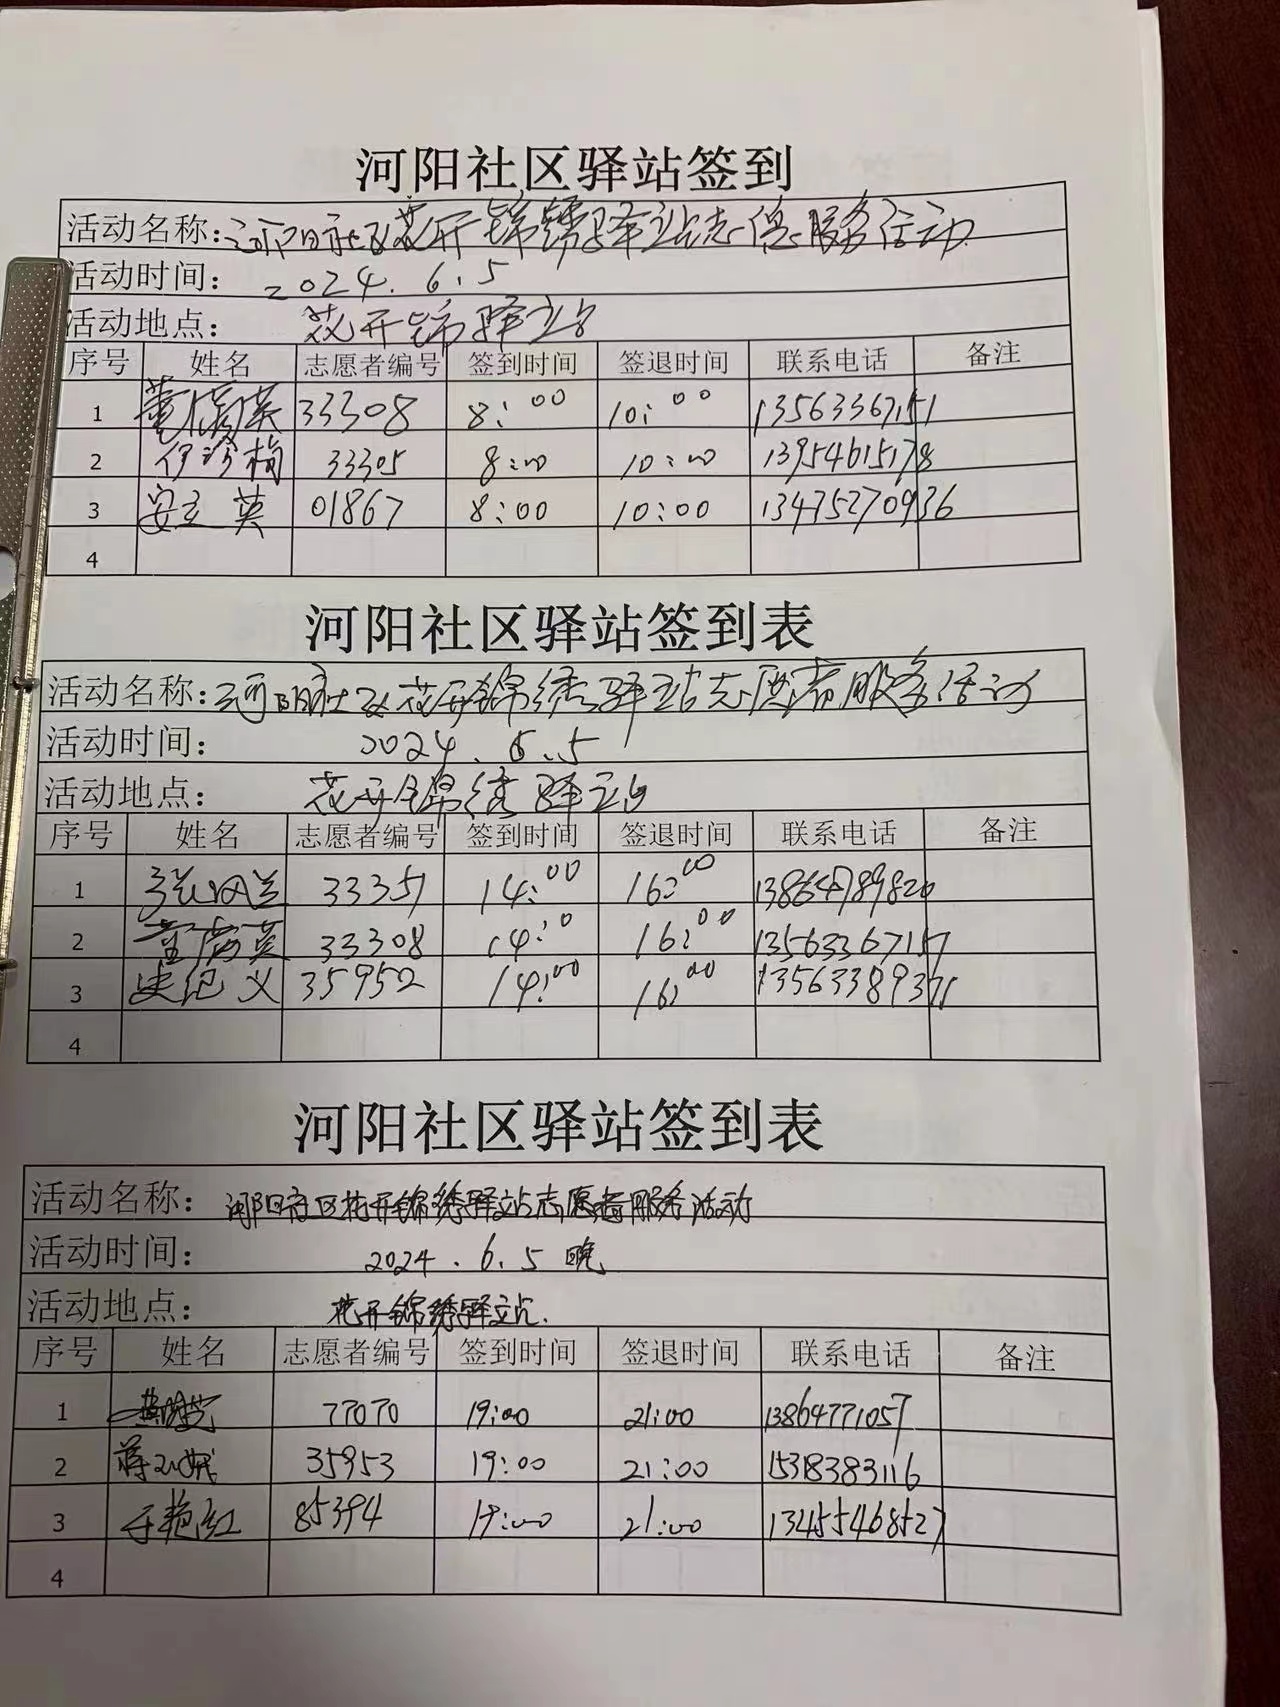 河阳社区驿站签到
活动名称：河阳社区花开锦绣驿站志愿服务活动
活动时间： 2024.6.5
活动地点： 花开锦 驿站
序号 姓名 志愿者编号 签到时间 签退时间 联系电话 备注
1 董 英 33308 8:00 10:00
2 伊珍梅 33305 8:00 10:00 13954615178
3 安立英 01867 8:00 10:00 13475270936
4
河阳社区驿站签到表
活动名称：河阳社区花开锦绣驿站志愿者服务活动
活动时间： 2024.6.5
活动地点： 花开锦绣驿站
序号 姓名 志愿者编号 签到时间 签退时间 联系电话 备注
1 张凤兰 33351 14:00 16:00 13864789820
2 董 英 33308 14:0 16:00
3 史纪义 35952 14:00 16:00
4
河阳社区驿站签到表
活动名称：河阳社区花开锦绣驿站志愿者服务活动
活动时间： 2024.6.5 晚
活动地点： 花开锦绣驿站.
序号 姓名 志愿者编号 签到时间 签退时间 联系电话 备注
1 77070 19:00 21:00 13864771057
2 蒋 娥 35953 19:00 21:00 15318383116
3 于艳红 85394 19:00 21:00 13455468527
4